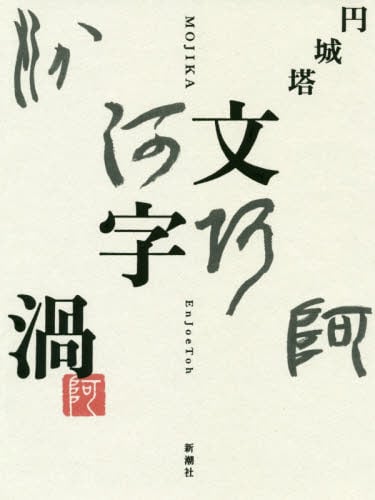 円城塔
MOJIKA
文字渦
EnJoeToh
新潮社
河
阿
阿